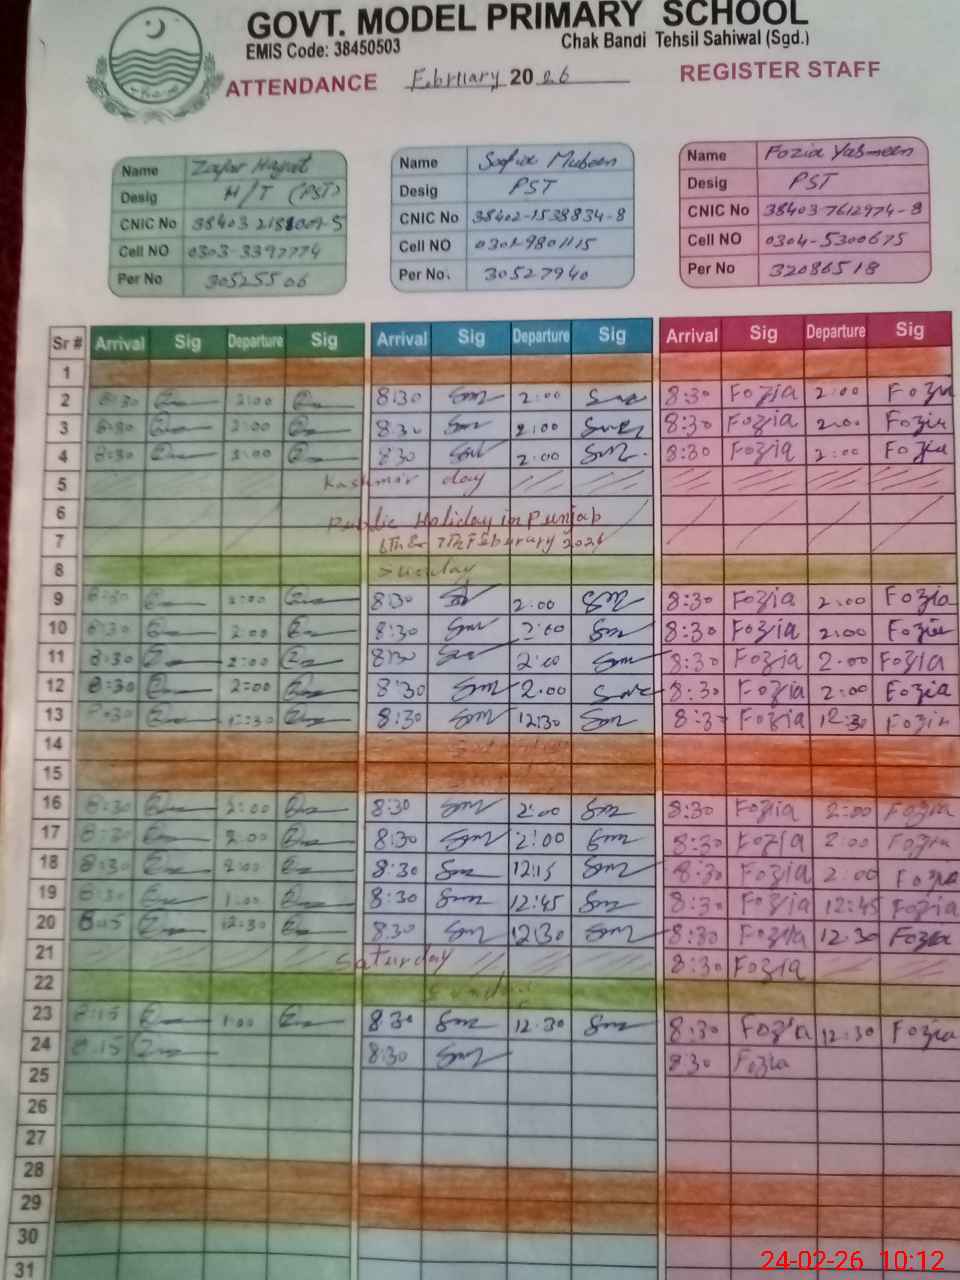 GOVT. MODEL PRIMARY SCHOOL
EMIS Code: 38450503 Chak Bandi Tehsil Sahiwal (Sgd.)
ATTENDANCE February 20 26 REGISTER STAFF
Name Zafar Hayat
Desig H/T (PST)
CNIC No
Cell NO 0303-3397774
Per No 30525506
Name Safia Mubeen
Desig PST
CNIC No 38402-1538834-8
Cell NO
Per No. 30527940
Name Fozia Yasmeen
Desig PST
CNIC No 38403-7612974-8
Cell NO 0304-5300675
Per No 32086518
Sr # Arrival Sig Departure Sig Arrival Sig Departure Sig Arrival Sig Departure Sig
1
2 8:30 2:00 8:30 Sm 2:00 8:30 Fozia 2:00 Fozia
3 8:30 2:00 8:30 Sm 2:00 8:30 Fozia 2:00 Fozia
4 8:30 2:00 8:30 Sm 2:00 Sm 8:30 Fozia 2:00 Fozia
5 Kashmir day
6 Public Holiday in Punjab
7 6th & 7th Feburary 2026
8 Sunday
9 8:30 2:00 8:30 2:00 Sm 8:30 Fozia 2:00 Fozia
10 8:30 2:00 8:30 Sm 2:00 Sm 8:30 Fozia 2:00 Fozia
11 8:30 2:00 8:30 2:00 Sm 8:30 Fozia 2:00 Fozia
12 8:30 2:00 8:30 Sm 2:00 8:30 Fozia 2:00 Fozia
13 8:30 12:30 8:30 Sm 12:30 Sm 8:30 Fozia 12:30 Fozia
14
15
16 8:30 2:00 8:30 Sm 2:00 Sm 8:30 Fozia 2:00 Fozia
17 8:30 2:00 8:30 Sm 2:00 Sm 8:30 Fozia 2:00 Fozia
18 8:30 2:00 8:30 Sm 12:15 Sm 8:30 Fozia 2:00 Fozia
19 8:30 1:00 8:30 Sm 12:45 Sm 8:30 Fozia 12:45 Fozia
20 8:15 12:30 8:30 Sm 12:30 Sm 8:30 Fozia 12:30 Fozia
21 Saturday 8:30 Fozia
22 Sunday
23 8:15 1:00 8:30 Sm 12:30 Sm 8:30 Fozia 12:30 Fozia
24 8:15 8:30 Sm 8:30 Fozia
25
26
27
28
29
30
31
24-02-26 10:12